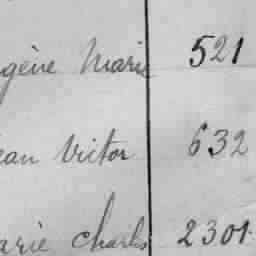 gène Marie 521
ean Victor 632
arie Charles 2301